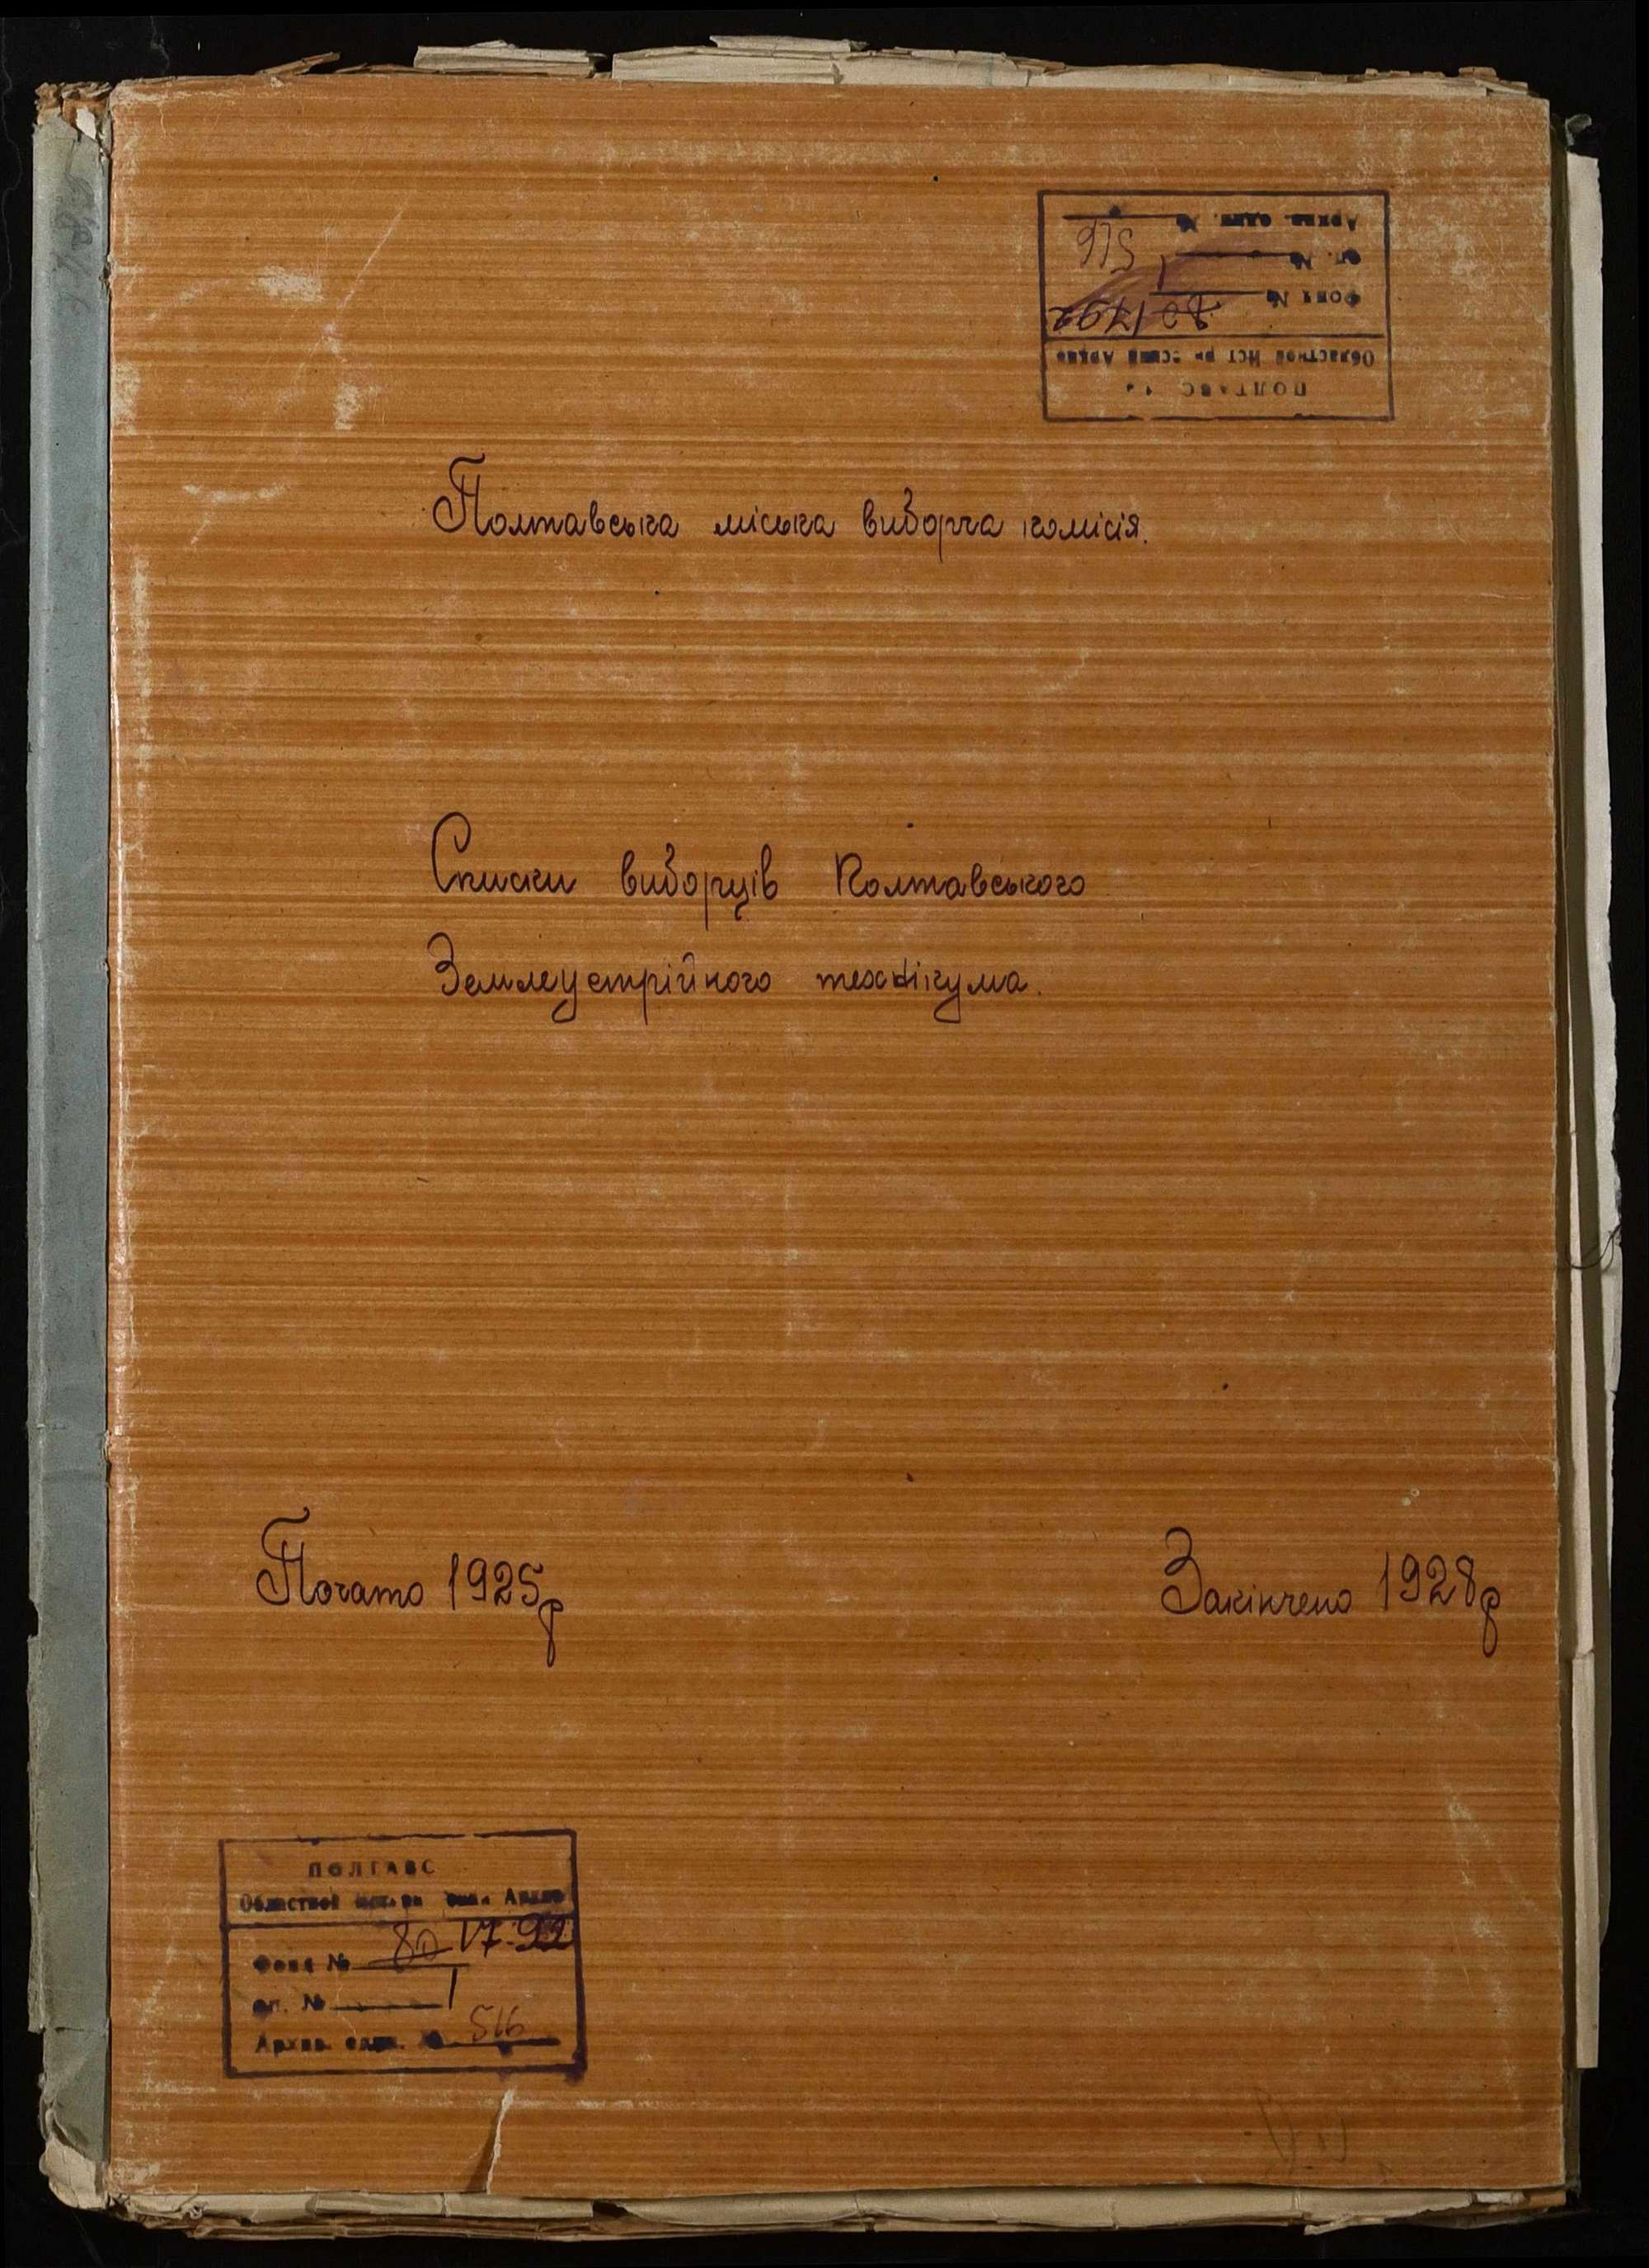 Полтавська міська виборча комісія.
Списки виборців Полтавського
Землеустрійного технікума.
Почато 1925р
Закінчено 1928р
ПОЛТАВС
Областной Архив
Фонд № 80 1792
оп. № 1
Архив. един. № 516
ПОЛТАВС
Областной Ист Архив
Фонд № 80 1792
оп. № 1
Архив. един. № 516